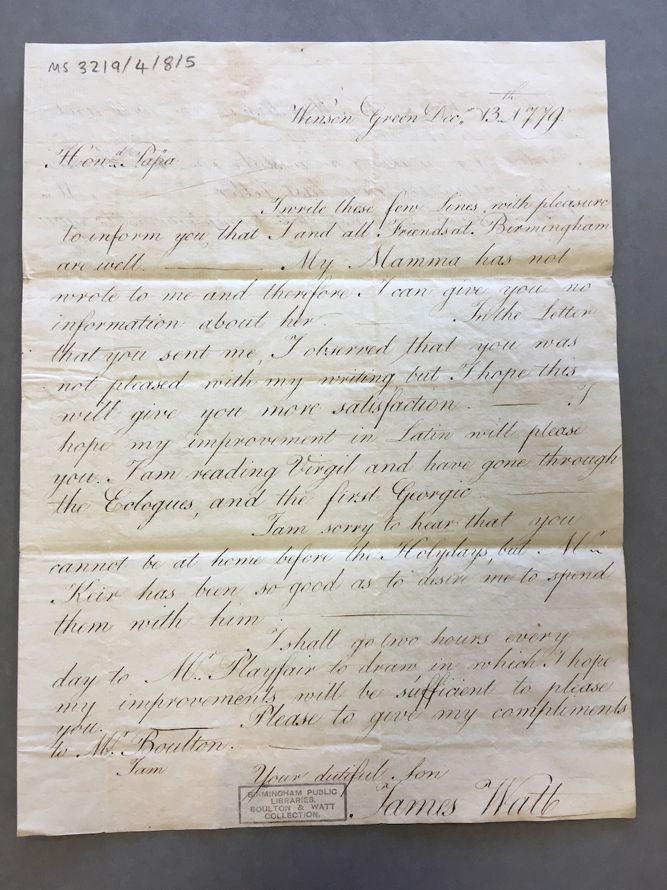 MS 3219/4/8/5
Winson Green Decr. 13th 1779.
Hon'd Papa
I write these few lines with pleasure
to inform you, that I and all Friends at Birmingham
are well. My Mamma has not
wrote to me and therefore I can give you no
information about her. In the Letter
that you sent me, I observed that you was
not pleased with my writing, but I hope this
will give you more satisfaction. I
hope my improvement in Latin will please
you. I am reading Virgil and have gone through
the Eclogues, and the first Georgic.
I am sorry to hear that you
cannot be at home before the Holydays, but Mr.
Keir has been so good as to desire me to spend
them with him.
I shall go two hours every
day to Mr. Playfair to draw in which I hope
my improvements will be sufficient to please
you. Please to give my compliments
to Mr. Boulton.
I am
Your dutiful Son
James Watt
BIRMINGHAM PUBLIC
LIBRARIES.
BOULTON & WATT
COLLECTION.